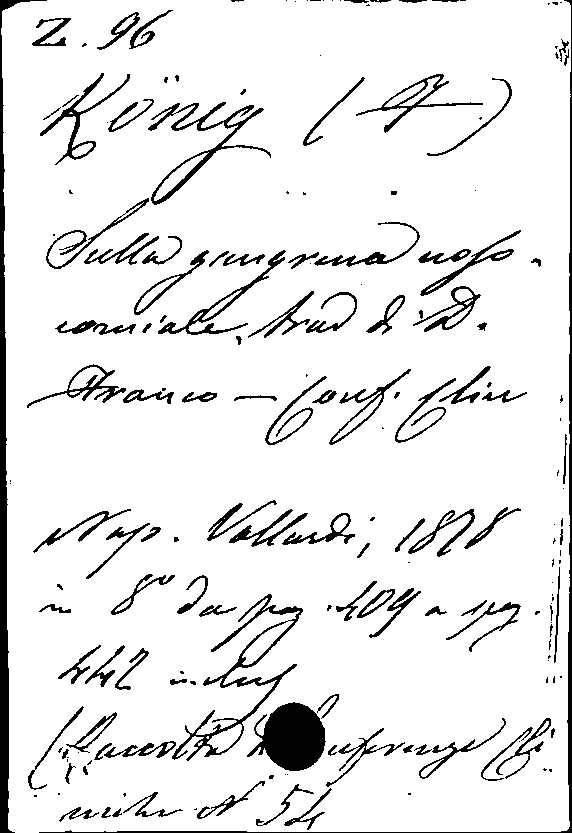 Z. 96
König (F)
Sulla gangrena noso-
comiale, trad di D.
Franco — Conf. Clin
Nap. Vallardi, 1878
in 8º da pag. 409 a pag.
442 inclus
(Raccolta di Conferenze Cli
niche N 54